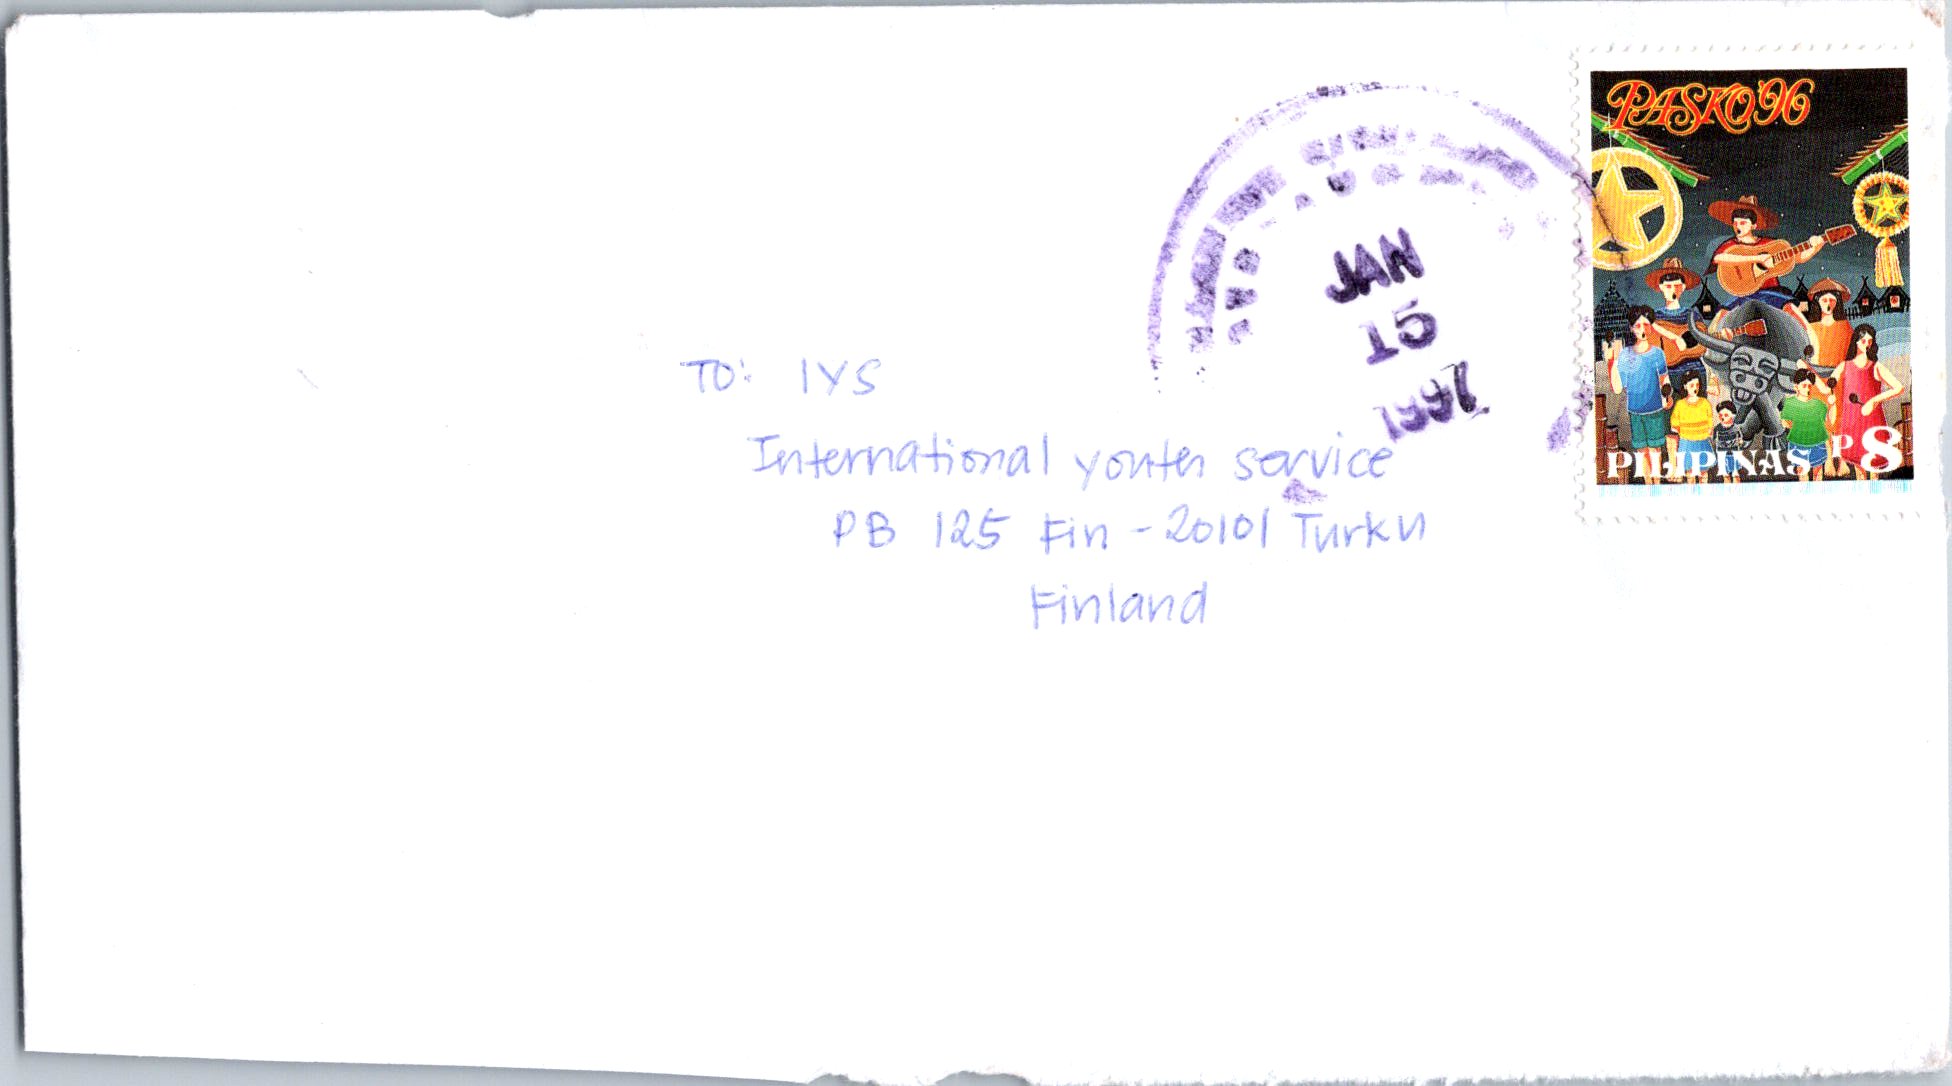 PASKO '96
JAN
15
1997
TO: IYS
International youth service
PB 125 Fin - 20101 Turku
Finland
PILIPINAS P8